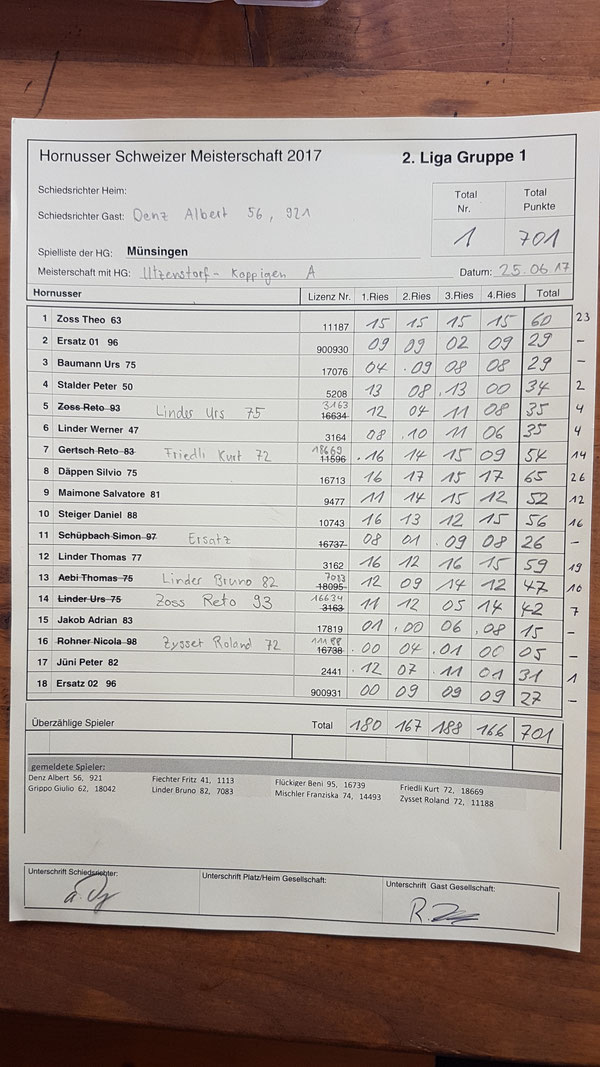 Hornusser Schweizer Meisterschaft 2017 2. Liga Gruppe 1
Schiedsrichter Heim:
Schiedsrichter Gast: Denz Albert 56, 921
Total Nr. Total Punkte
1 701
Spielliste der HG: Münsingen
Meisterschaft mit HG: Utzenstorf-Koppigen A Datum: 25.06.17
Hornusser Lizenz Nr. 1.Ries 2.Ries 3.Ries 4.Ries Total
1 Zoss Theo 63 11187 15 15 15 15 60 23
2 Ersatz 01 96 900930 09 09 02 09 29 -
3 Baumann Urs 75 17076 04 .09 08 08 29 -
4 Stalder Peter 50 5208 13 08 .13 00 34 2
5 Zoss Reto 93 Linder Urs 75 3163 16634 12 04 11 08 35 4
6 Linder Werner 47 3164 08 .10 11 06 35 4
7 Gertsch Reto 83 Friedli Kurt 72 18669 11596 .16 14 15 09 54 14
8 Däppen Silvio 75 16713 16 17 15 17 65 26
9 Maimone Salvatore 81 9477 11 14 15 12 52 12
10 Steiger Daniel 88 10743 16 13 12 15 56 16
11 Schüpbach Simon 97 Ersatz 16737 08 01 .09 08 26 -
12 Linder Thomas 77 3162 16 12 16 15 59 19
13 Aebi Thomas 75 Linder Bruno 82 7083 18095 12 09 14 12 47 10
14 Linder Urs 75 Zoss Reto 93 16634 3163 11 12 05 14 42 7
15 Jakob Adrian 83 17819 01 .00 06 .08 15 -
16 Rohner Nicola 98 Zysset Roland 72 11188 16738 .00 04 .01 00 05 -
17 Jüni Peter 82 2441 .12 07 .11 01 31 1
18 Ersatz 02 96 900931 00 09 09 09 27 -
Überzählige Spieler Total 180 167 188 166 701
gemeldete Spieler:
Denz Albert 56, 921 Fiechter Fritz 41, 1113 Flückiger Beni 95, 16739 Friedli Kurt 72, 18669
Grippo Giulio 62, 18042 Linder Bruno 82, 7083 Mischler Franziska 74, 14493 Zysset Roland 72, 11188
Unterschrift Schiedsrichter: Unterschrift Platz/Heim Gesellschaft: Unterschrift Gast Gesellschaft: